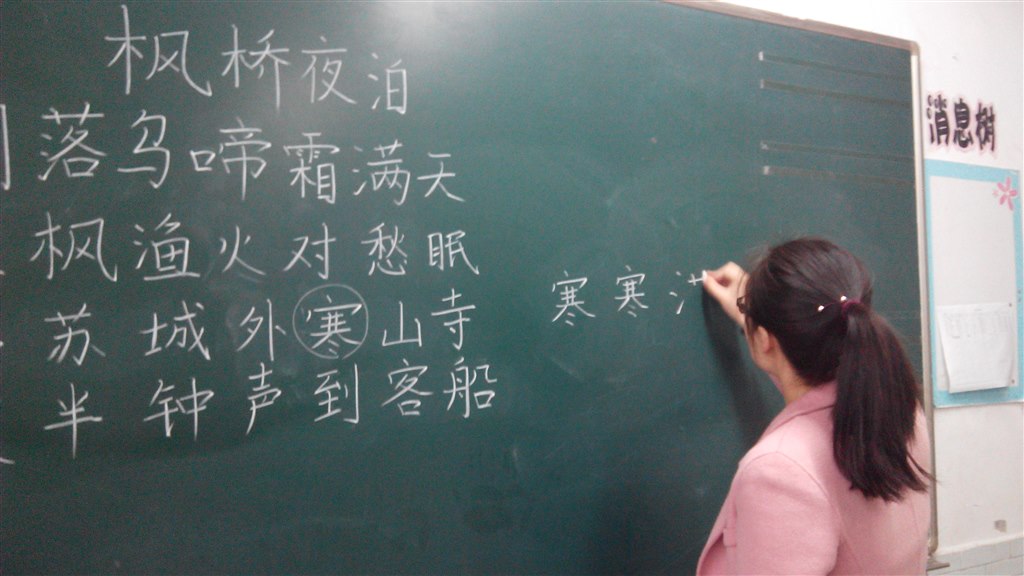 枫桥夜泊
落乌啼霜满天
枫渔火对愁眠
苏城外寒山寺
半钟声到客船
寒寒
消息树